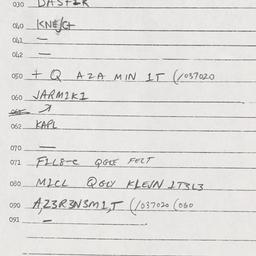 030 DASTIR
040 KNE/C+
041 —
042 —
050 + Q AZA MIN 1T (/037020
060 JARMIKI
062 KAPL
070 —
071 FILS-C QGLE FELT
080 MICL QGLY KLEVN ITSL3
090 A,Z3R3NSM1,T (/037020 (060
091 —